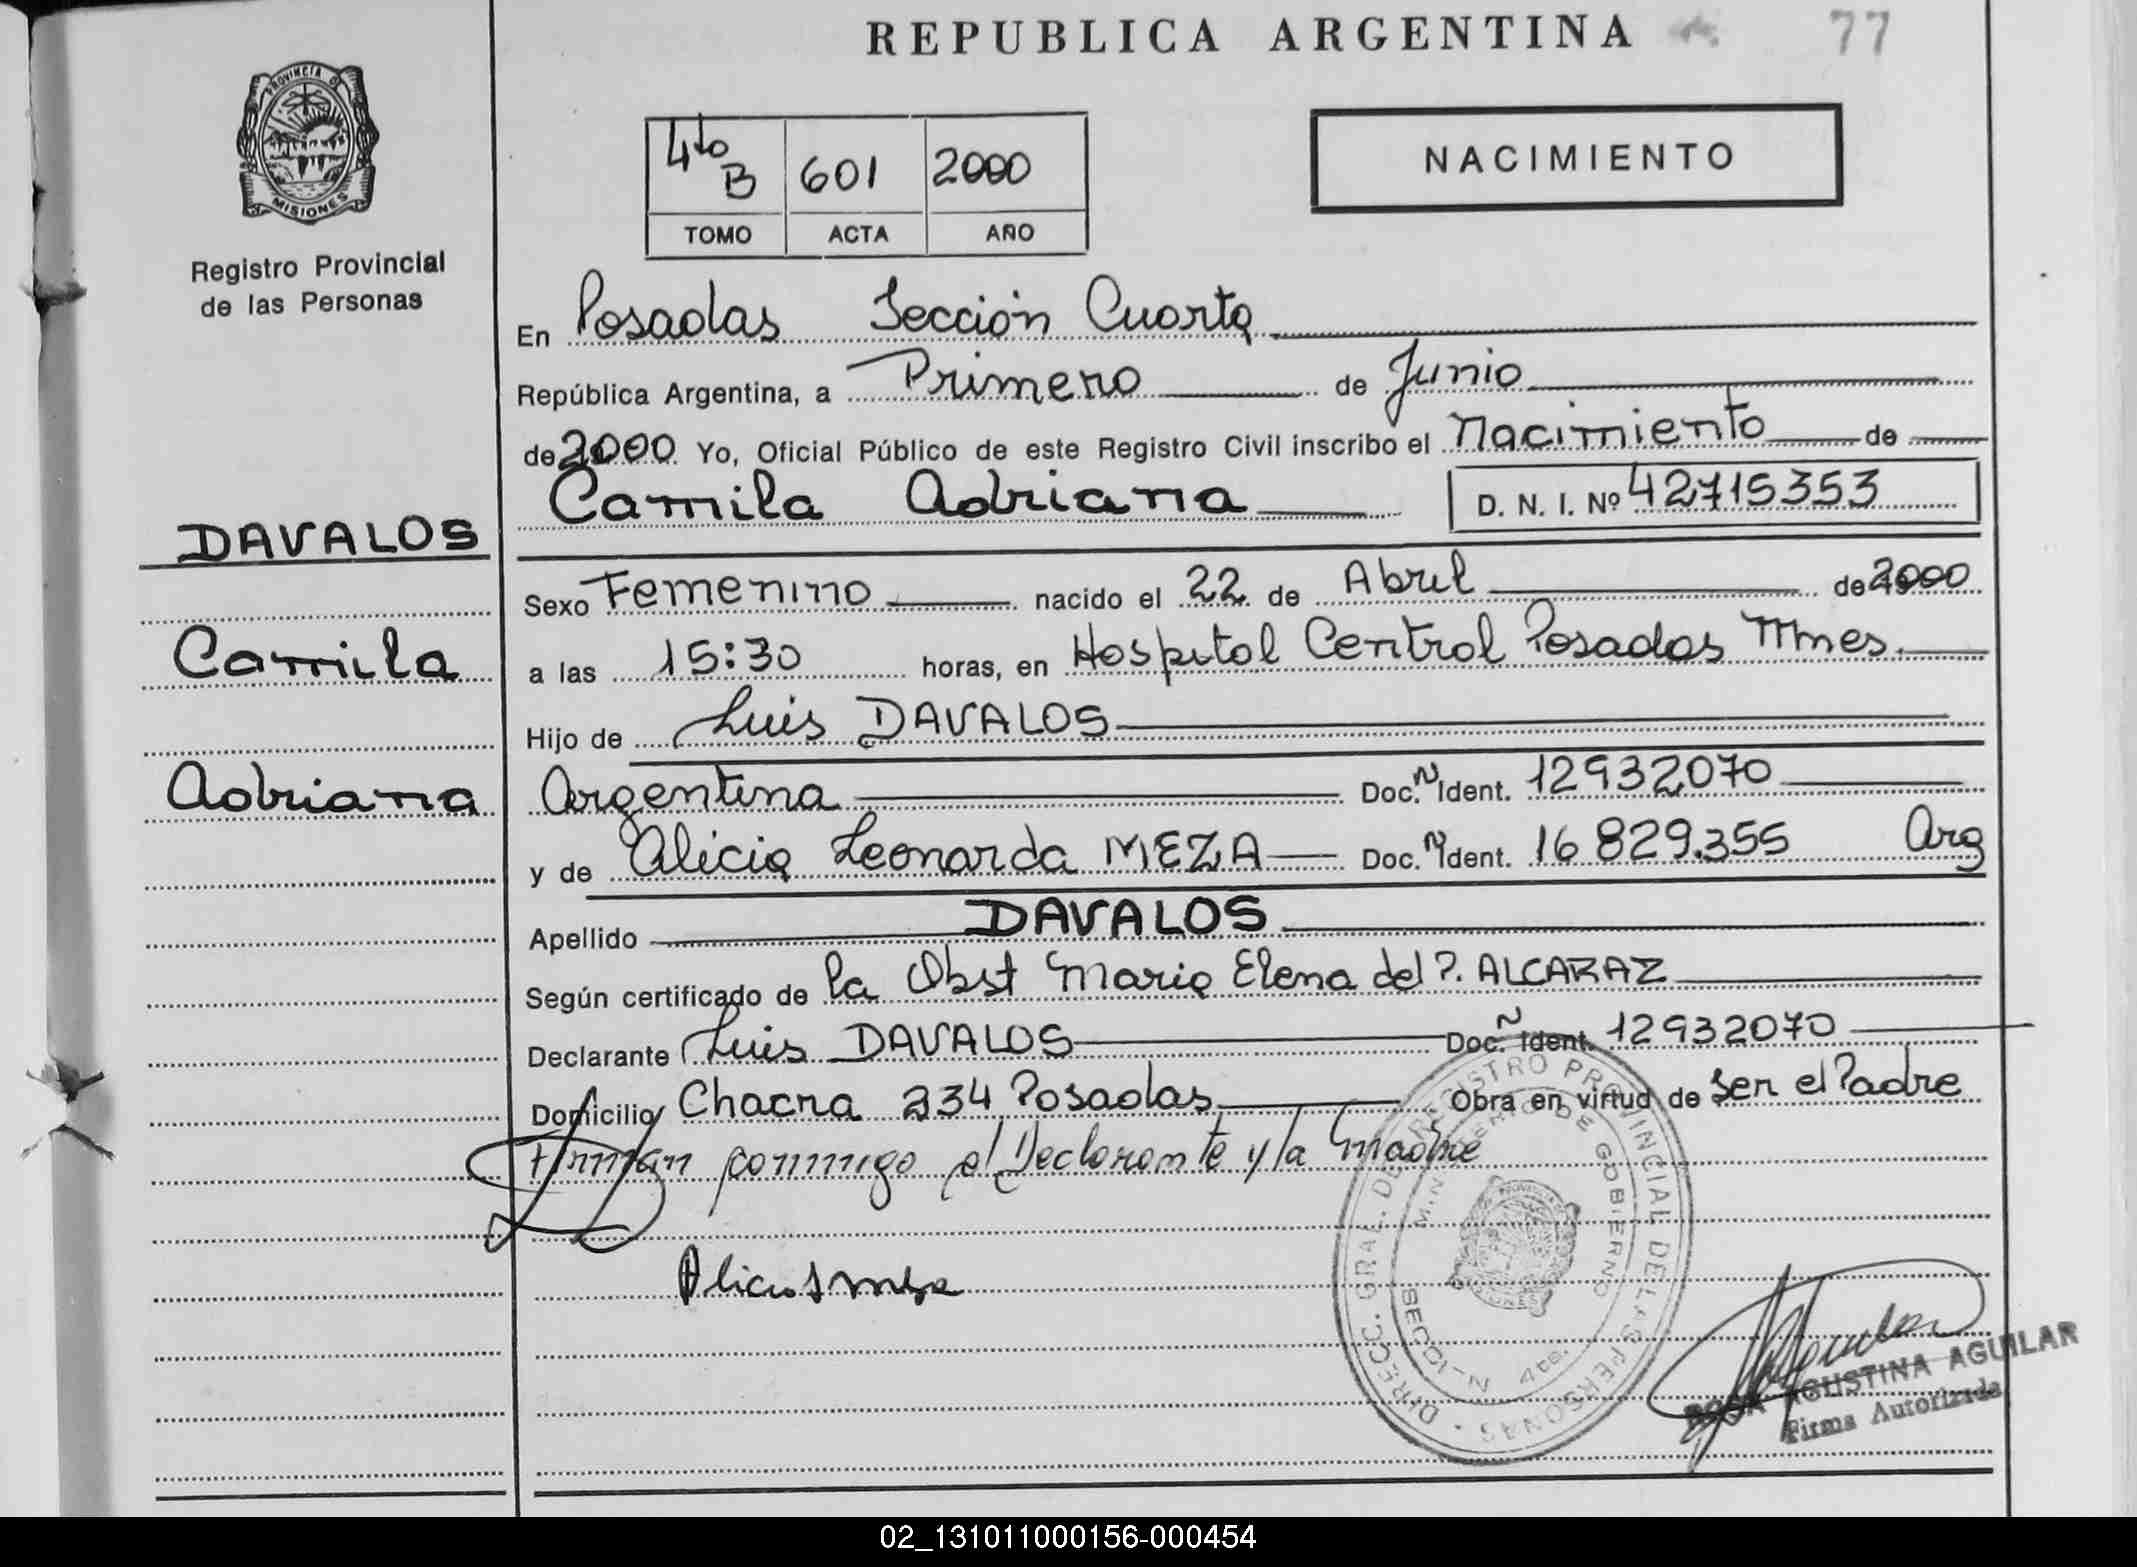 REPUBLICA ARGENTINA
77
PROVINCIA DE
MISIONES
Registro Provincial
de las Personas
4to B 601 2000
TOMO ACTA AÑO
NACIMIENTO
En Posadas Sección Cuarta
República Argentina, a Primero de Junio
de 2000 Yo, Oficial Público de este Registro Civil inscribo el Nacimiento de
Camila Adriana D. N. I. Nº 42715353
DAVALOS
Camila
Adriana
Sexo Femenino nacido el 22 de Abril de 2000
a las 15:30 horas, en Hospital Central Posadas Mnes.
Hijo de Luis DAVALOS
Argentina Doc. N Ident. 12932070
y de Alicia Leonarda MEZA Doc. N Ident. 16829.355 Arg
Apellido DAVALOS
Según certificado de la Obst Maria Elena del P. ALCARAZ
Declarante Luis DAVALOS Doc. N Ident. 12932070
Domicilio Chacra 234 Posadas Obra en virtud de Ser el Padre
Firman conmigo el Declarante y la Madre
DIRECC. GRAL. DE REGISTRO PROVINCIAL DE LAS PERSONAS
MINISTERIO DE GOBIERNO
SECCION 4ta.
ROSA AGUSTINA AGUILAR
Firma Autorizada
02_131011000156-000454